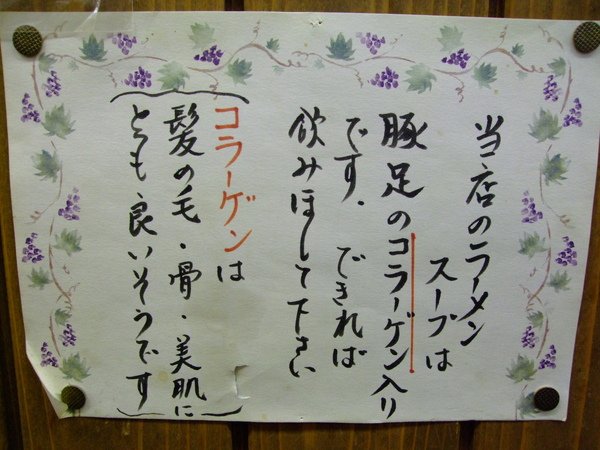 当店のラーメン
スープは
豚足のコラーゲン入り
です．できれば
飲みほして下さい
コラーゲンは
髪の毛・骨・美肌に
とても良いそうです